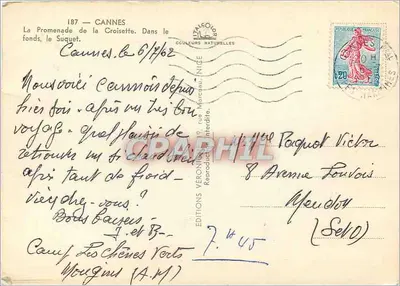 187 — CANNES
La Promenade de la Croisette. Dans le
fonds, le Suquet.
COULEURS NATURELLES
0,20
Cannes le 6/7/62
Nous voici Cannois depuis
hier soir - après un très bon
voyage - quel plaisir de
retrouver un si chaud soleil
après tant de froid -
Viendrez-vous ?
Bons baisers
J. et B-
Camp Les Chênes Verts
Mougins (A.M)
EDITIONS rue Marceau, NICE
Reproduction interdite.
CPAPHIL
Mme Paquot Victor
8 Avenue Louvois
Meudon
(S et O)
7.H 45